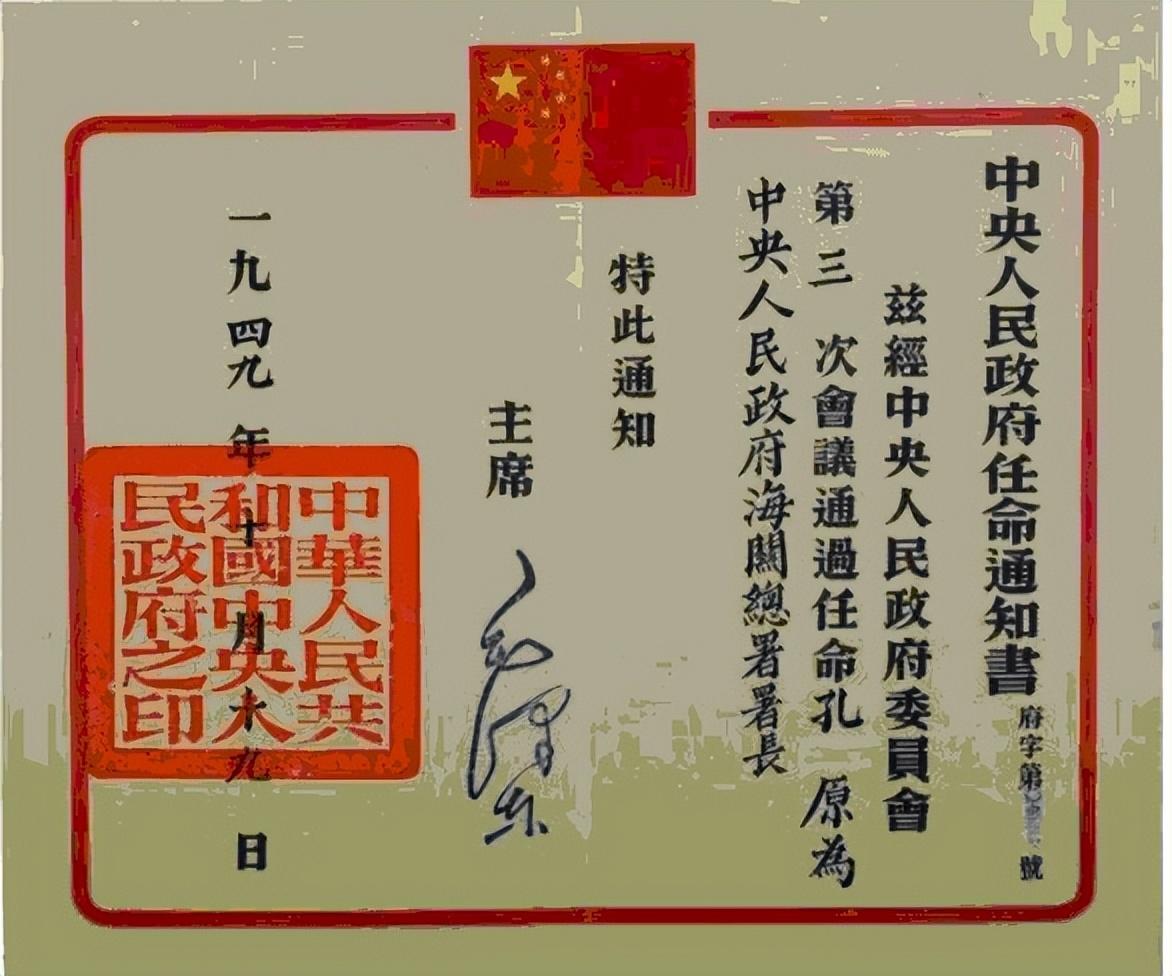 中央人民政府任命通知書
府字第 號
茲經中央人民政府委員會
第三次會議通過任命孔原為
中央人民政府海關總署署長
特此通知
主席 毛澤東
一九四九年十月十九日
中華人民共
和國中央人
民政府之印